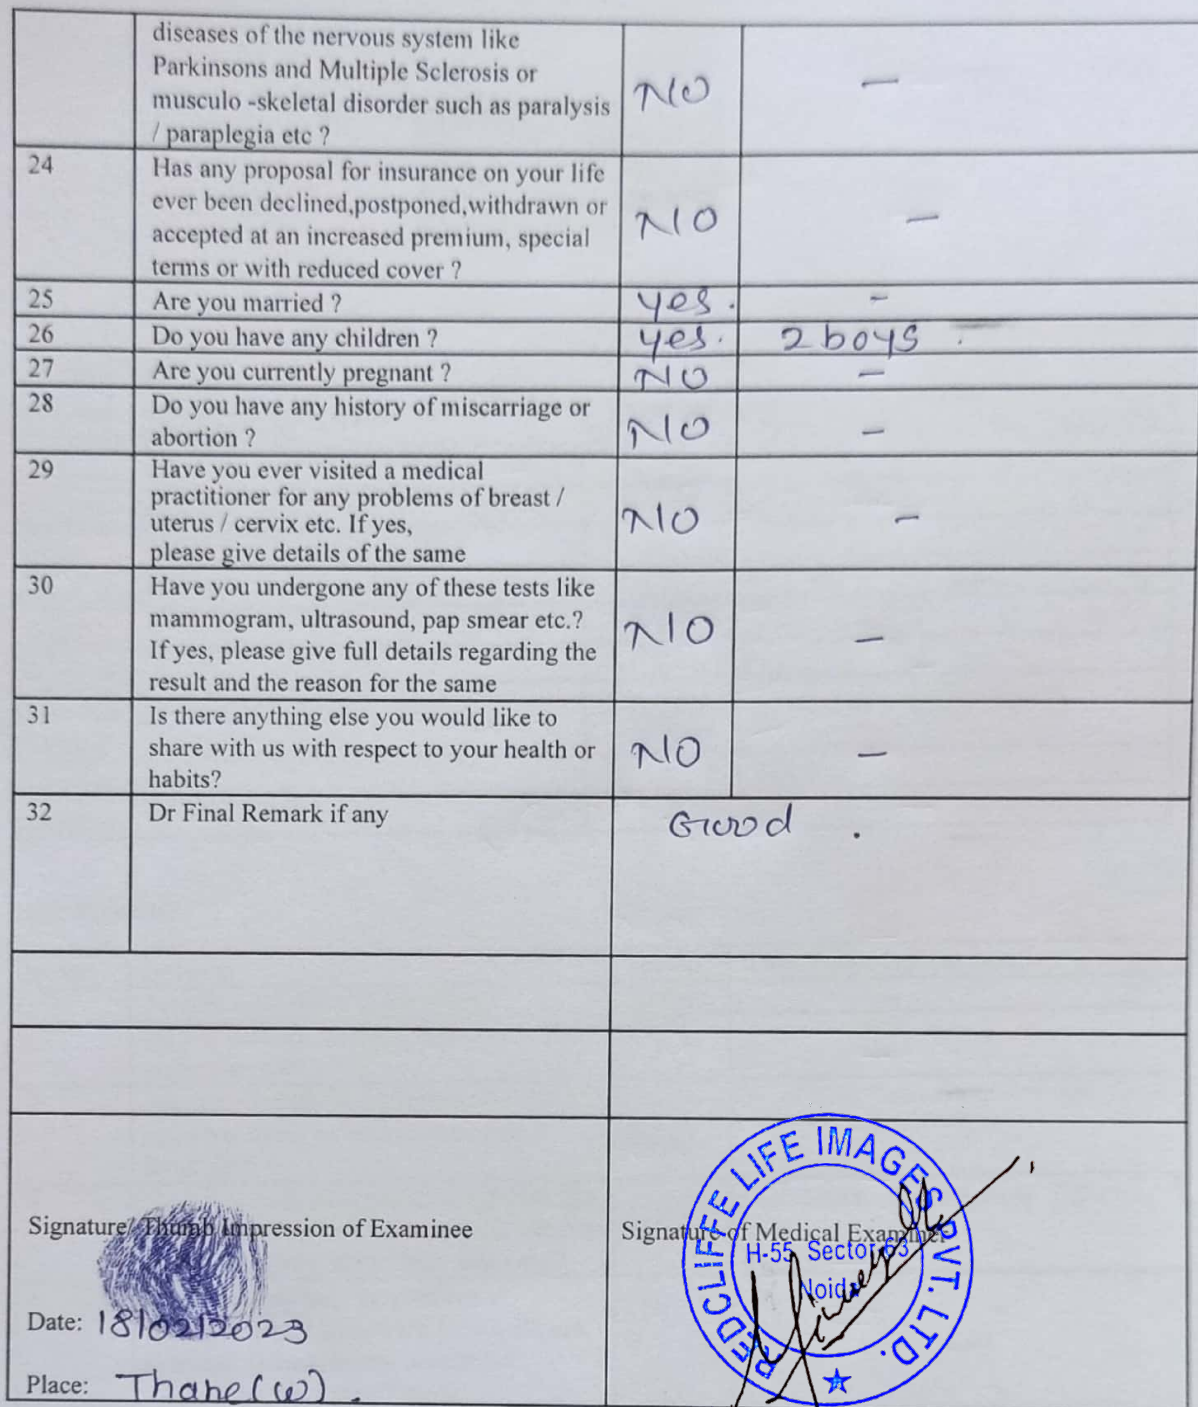 diseases of the nervous system like
Parkinsons and Multiple Sclerosis or
musculo -skeletal disorder such as paralysis
/ paraplegia etc ?
NO
-
24
Has any proposal for insurance on your life
ever been declined,postponed,withdrawn or
accepted at an increased premium, special
terms or with reduced cover ?
NO
-
25
Are you married ?
yes.
-
26
Do you have any children ?
yes.
2 boys
27
Are you currently pregnant ?
NO
-
28
Do you have any history of miscarriage or
abortion ?
NO
-
29
Have you ever visited a medical
practitioner for any problems of breast /
uterus / cervix etc. If yes,
please give details of the same
NO
-
30
Have you undergone any of these tests like
mammogram, ultrasound, pap smear etc.?
If yes, please give full details regarding the
result and the reason for the same
NO
-
31
Is there anything else you would like to
share with us with respect to your health or
habits?
NO
-
32
Dr Final Remark if any
Good .
Signature/ Thumb Impression of Examinee
Date: 18/02/2023
Place: Thane (w).
Signature of Medical Examiner
REDCLIFFE LIFE IMAGES PVT. LTD.
H-55, Sector 63
Noida